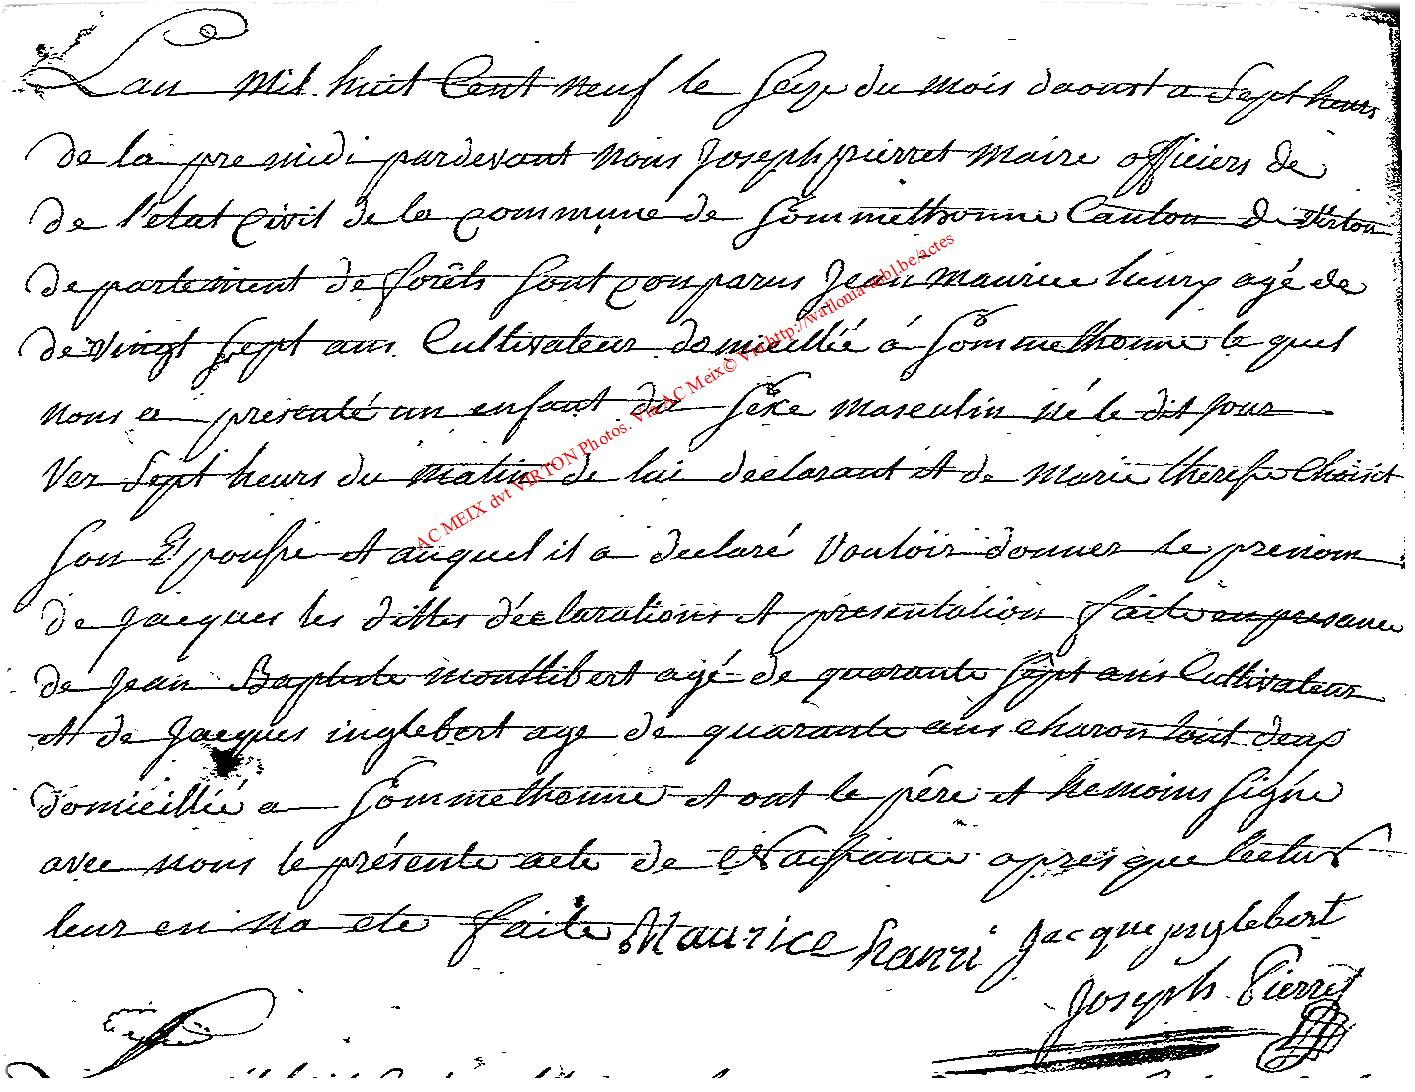 Lan mil huit Cent neuf le Seize du mois daoust a Sept heurs
de la pre midi pardevant nous Joseph pierret maire officiers de
de l'etat Civil de la Commune de Sommethonne Canton de Virton
departement de forêts Sont Comparus Jean maurice henry agé de
de vingt Sept ans Cultivateur domicillié á Sommethonne le quel
nous a presenté un enfant du Sexe masculin né le dit jour
Ver Sept heurs du matin de lui declarant et de marie therese Choisit
Son Epousse et auquel il a declaré Vouloir donner le prenom
de jacques les dittes déclarations et presentation faite en presance
de jean Baptiste montlibert agé de quarante Sept ans Cultivateur
et de jacques inglebert age de quarante ans charon tout deux
domicillié a Sommethonne et ont le pére et temoins Signe
avec nous le présente acte de Naissance apres que lecture
leur en na ete faite Maurice hanri jacque jnglebert
Joseph Pierret
AC MEIX dvt VIRTON Photos. Via AC Meix© Via http://wallonia-ab1be/actes